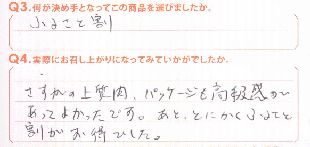 Q3.何が決め手となってこの商品を選びましたか。
ふるさと割
Q4.実際にお召し上がりになってみていかがでしたか。
さすがの上質肉、パッケージも高級感が
あってよかったです。あと、とにかくふるさと
割がお得でした。